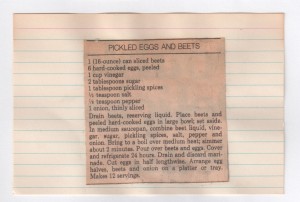 PICKLED EGGS AND BEETS
1 (16-ounce) can sliced beets
6 hard-cooked eggs, peeled
1 cup vinegar
2 tablespoons sugar
1 tablespoon pickling spices
½ teaspoon salt
⅛ teaspoon pepper
1 onion, thinly sliced
Drain beets, reserving liquid. Place beets and
peeled hard-cooked eggs in large bowl; set aside.
In medium saucepan, combine beet liquid, vine-
gar, sugar, pickling spices, salt, pepper and
onion. Bring to a boil over medium heat; simmer
about 5 minutes. Pour over beets and eggs. Cover
and refrigerate 24 hours. Drain and discard mari-
nade. Cut eggs in half lengthwise. Arrange egg
halves, beets and onion on a platter or tray.
Makes 12 servings.